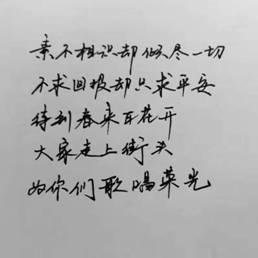 素不相识却倾尽一切
不求回报却只求平安
待到春来百花开
大家走上街头
为你们歌唱荣光